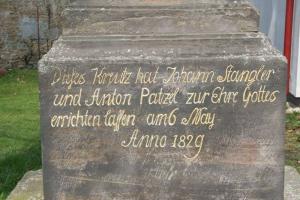 Dieses Kreutz hat Johann Stangler
und Anton Patzel zur Ehre Gottes
errichten lassen am 6 May
Anno 1829